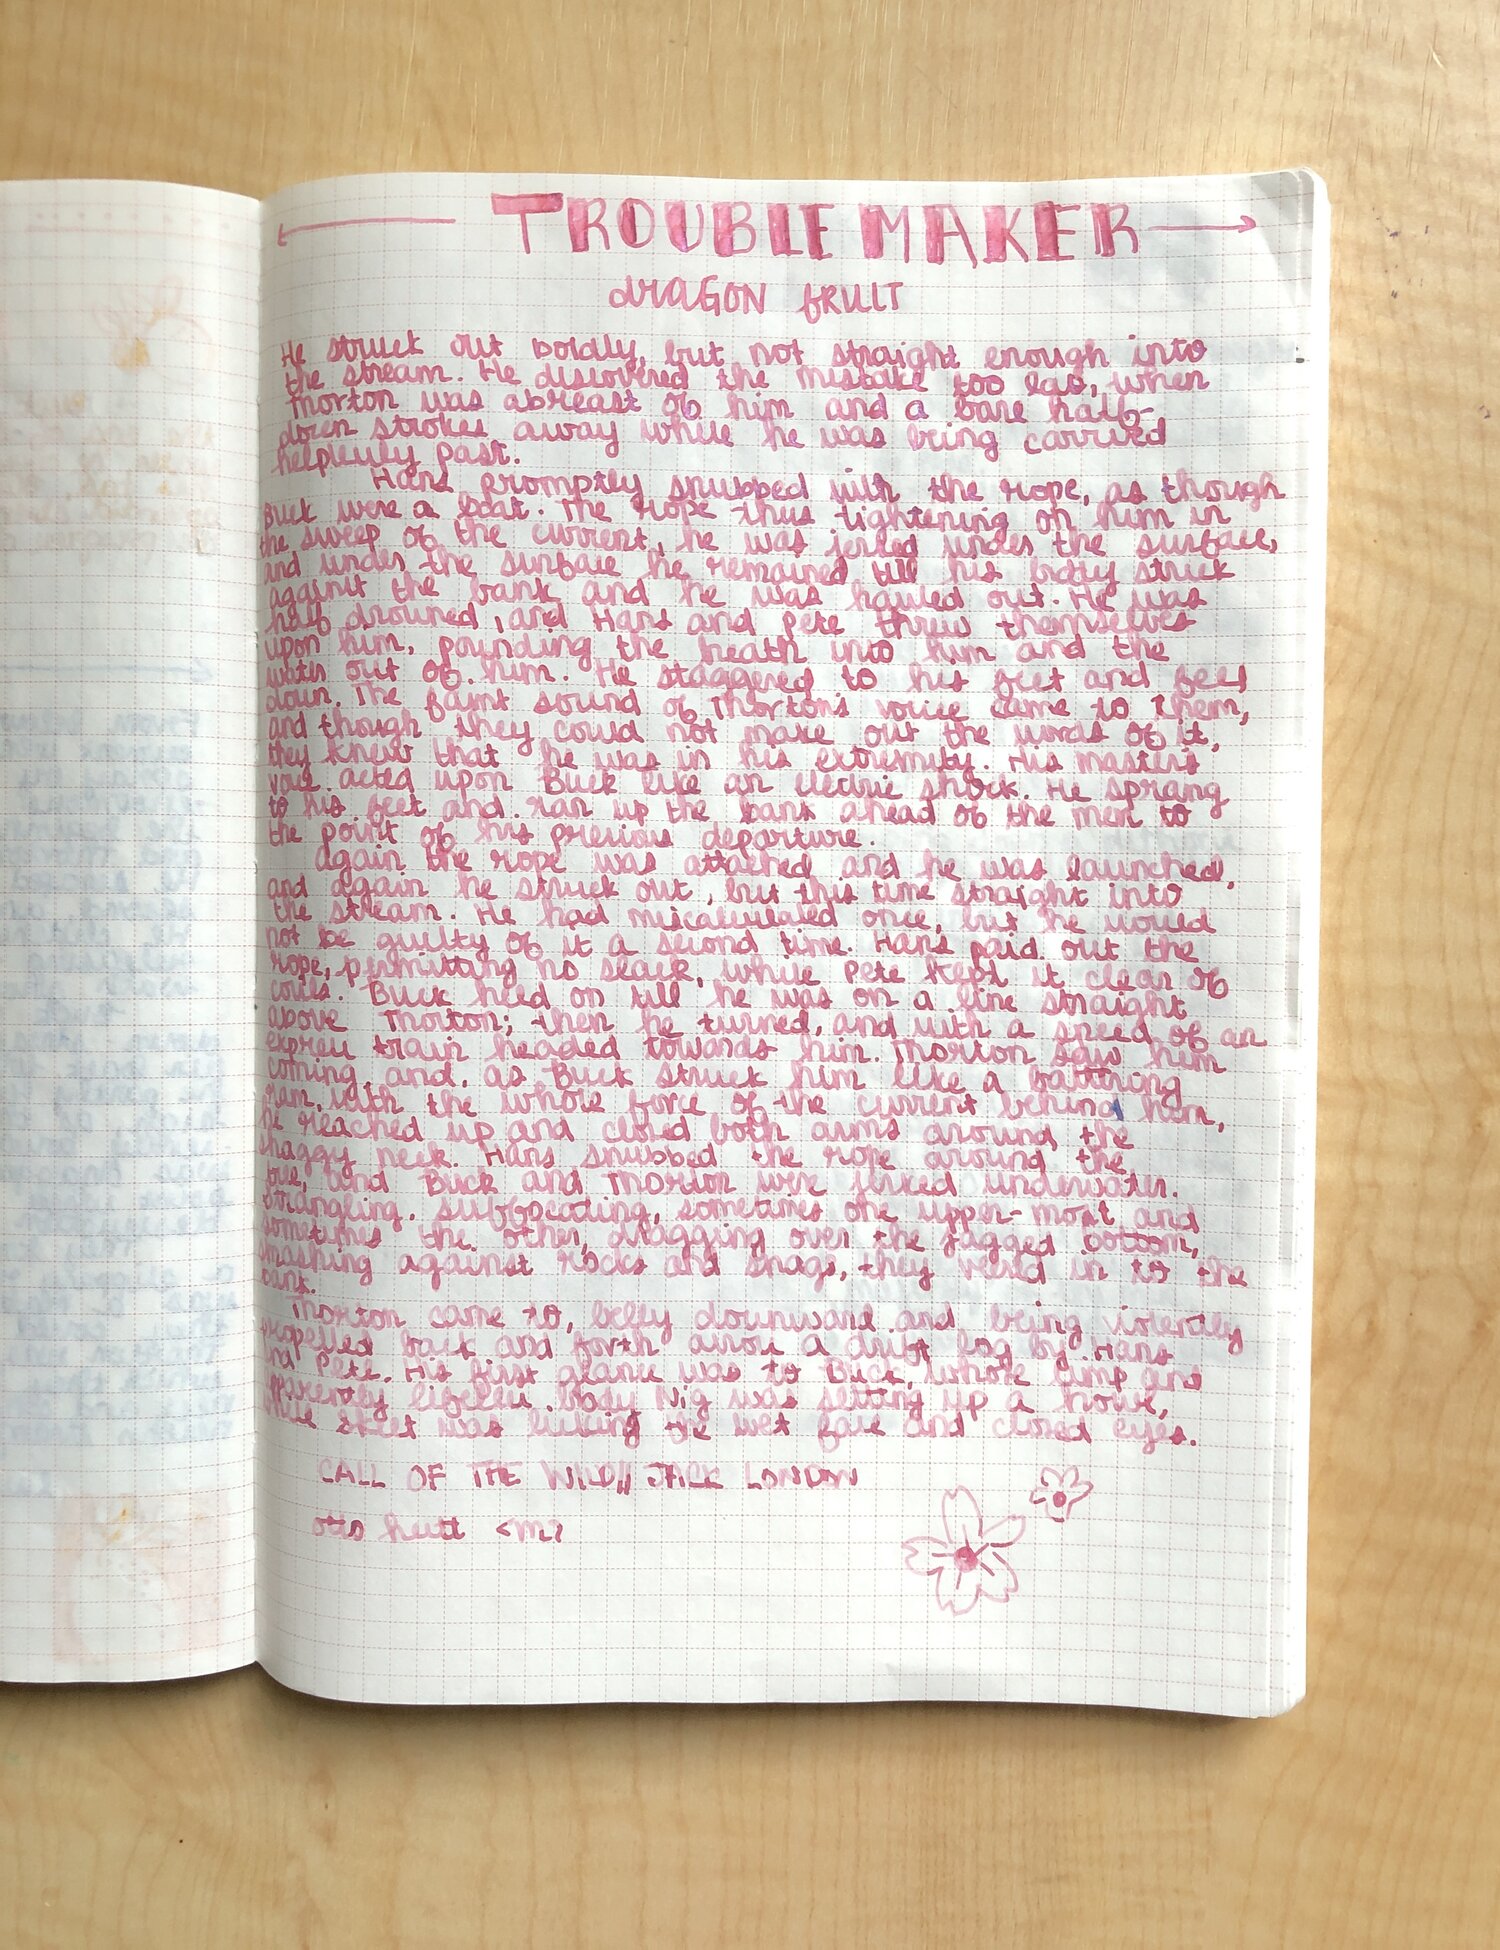 TROUBLE MAKER
dRAGON fRUIT
He struck out boldly, but not straight enough into
the stream. He discovered the mistake too late, when
Thorton was abreast of him and a bare half-
dozen strokes away while he was being carried
helplessly past.
Hans promptly snubbed with the rope, as though
Buck were a boat. The rope thus tightening on him in
the sweep of the current, he was jerked under the surface,
and under the surface he remained till his body struck
against the bank and he was hauled out. He was
half drowned, and Hans and Pete threw themselves
upon him, pounding the breath into him and the
water out of him. He staggered to his feet and fell
down. The faint sound of Thorton's voice came to them,
and though they could not make out the words of it,
they knew that he was in his extremity. His masters
voice acted upon Buck like an electric shock. He sprang
to his feet and ran up the bank ahead of the men to
the point of his previous departure.
Again the rope was attached and he was launched,
and again he struck out, but this time straight into
the stream. He had miscalculated once, but he would
not be guilty of it a second time. Hans paid out the
rope, permitting no slack, while Pete kept it clear of
coils. Buck held on till he was on a line straight
above Thorton; then he turned, and with a speed of an
express train headed towards him. Thorton saw him
coming and, as Buck struck him like a battering
ram, with the whole force of the current behind him,
he reached up and closed both arms around the
shaggy neck. Hans snubbed the rope around the
tree, and Buck and Thorton were jerked underwater.
Strangling, suffocating, sometimes one upper-most and
sometimes the other, dragging over the jagged bottom,
smashing against rocks and snags, they veered in to the
bank.
Thorton came to, belly downward and being violently
propelled back and forth across a drift log by Hans
and Pete. His first glance was to Buck, whose limp and
apparently lifeless body Nig was setting up a howl,
while Skeet was licking the wet face and closed eyes.
CALL OF THE WILD // JACK LONDON